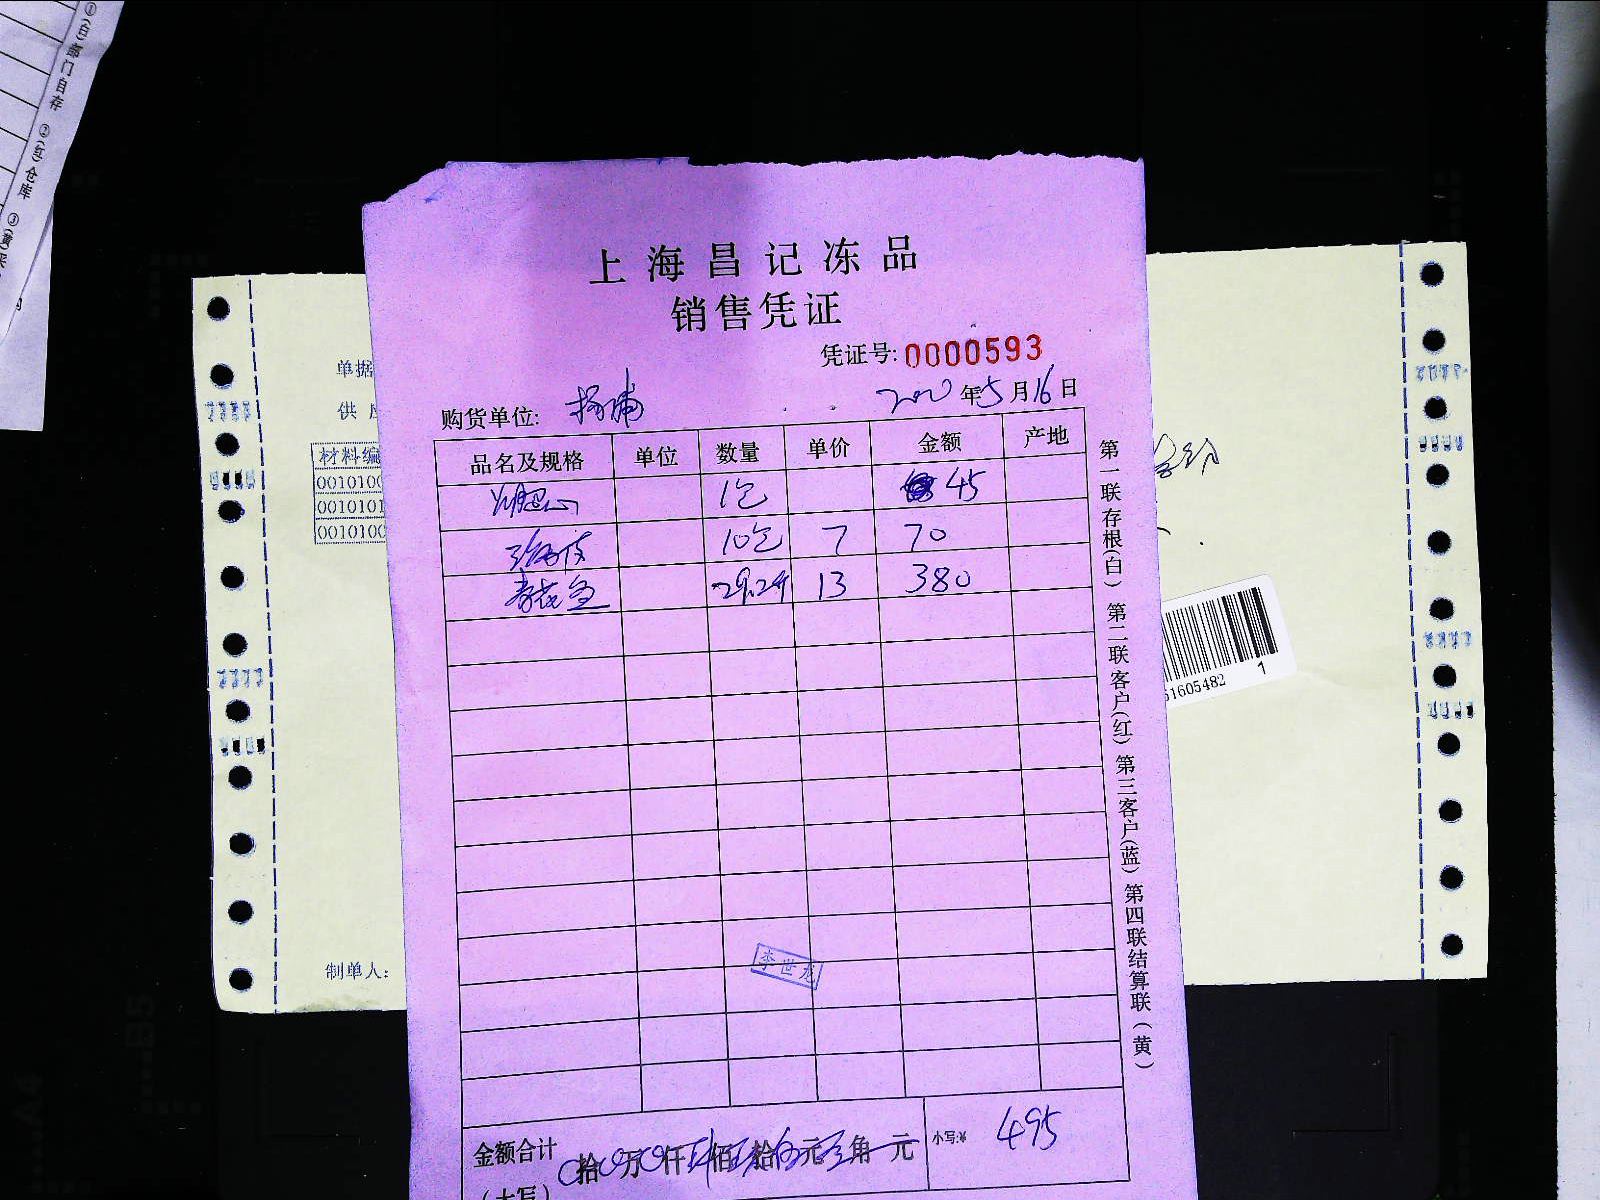 ①(白)部门自存 ②(红)仓库 ③(黄)采
上海昌记冻品
销售凭证
凭证号: 0000593
购货单位: 杨浦 2020年5月16日
品名及规格 单位 数量 单价 金额 产地
1包 45
10包 7 70
青花鱼 29.2斤 13 380
李世龙
金额合计 拾 万 仟 佰 拾 元 角 元 小写:¥ 495
(大写)
第一联存根(白) 第二联客户(红) 第三客户(蓝) 第四联结算联(黄)
单据
供
材料编
0010100
0010101
0010100
制单人:
61605482 1